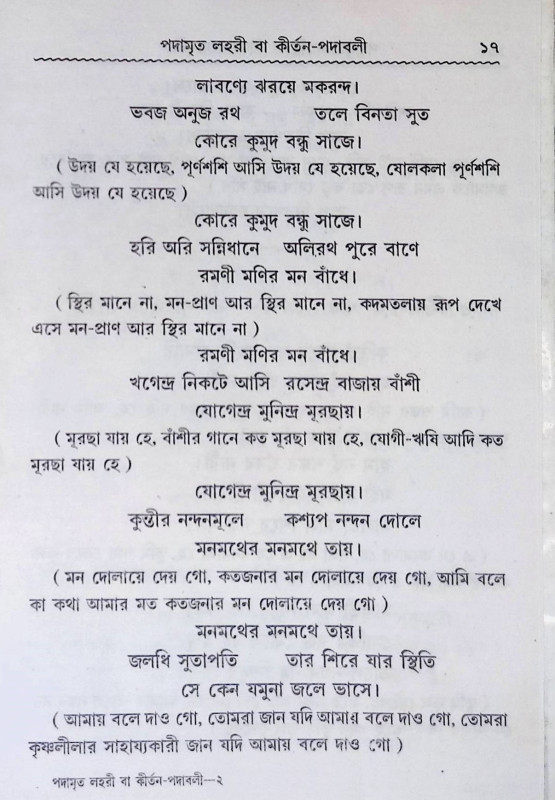 পদামৃত লহরী বা কীর্তন-পদাবলী ১৭
লাবণ্যে ঝরয়ে মকরন্দ।
ভবজ অনুজ রথ তলে বিনতা সুত
কোরে কুমুদ বন্ধু সাজে।
( উদয় যে হয়েছে, পূর্ণশশি আসি উদয় যে হয়েছে, ষোলকলা পূর্ণশশি
আসি উদয় যে হয়েছে )
কোরে কুমুদ বন্ধু সাজে।
হরি অরি সন্নিধানে অলিরথ পুরে বাণে
রমণী মণির মন বাঁধে।
( স্থির মানে না, মন-প্রাণ আর স্থির মানে না, কদমতলায় রূপ দেখে
এসে মন-প্রাণ আর স্থির মানে না )
রমণী মণির মন বাঁধে।
খগেন্দ্র নিকটে আসি রসেন্দ্র বাজায় বাঁশী
যোগেন্দ্র মুনিন্দ্র মূরছায়।
( মূরছা যায় হে, বাঁশীর গানে কত মূরছা যায় হে, যোগী-ঋষি আদি কত
মূরছা যায় হে )
যোগেন্দ্র মুনিন্দ্র মূরছায়।
কুন্তীর নন্দনমূলে কশ্যপ নন্দন দোলে
মনমথের মনমথে তায়।
( মন দোলায়ে দেয় গো, কতজনার মন দোলায়ে দেয় গো, আমি বলে
কা কথা আমার মত কতজনার মন দোলায়ে দেয় গো )
মনমথের মনমথে তায়।
জলধি সুতাপতি তার শিরে যার স্থিতি
সে কেন যমুনা জলে ভাসে।
( আমায় বলে দাও গো, তোমরা জান যদি আমায় বলে দাও গো, তোমরা
কৃষ্ণলীলার সাহায্যকারী জান যদি আমায় বলে দাও গো )
পদামৃত লহরী বা কীর্তন-পদাবলী—২